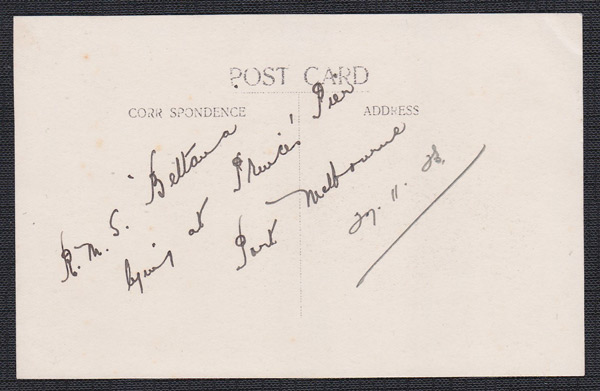 POST CARD
CORR SPONDENCE
ADDRESS
R.M.S. "Beltana
lying at Princes' Pier
Port Melbourne
29. 11. 28.